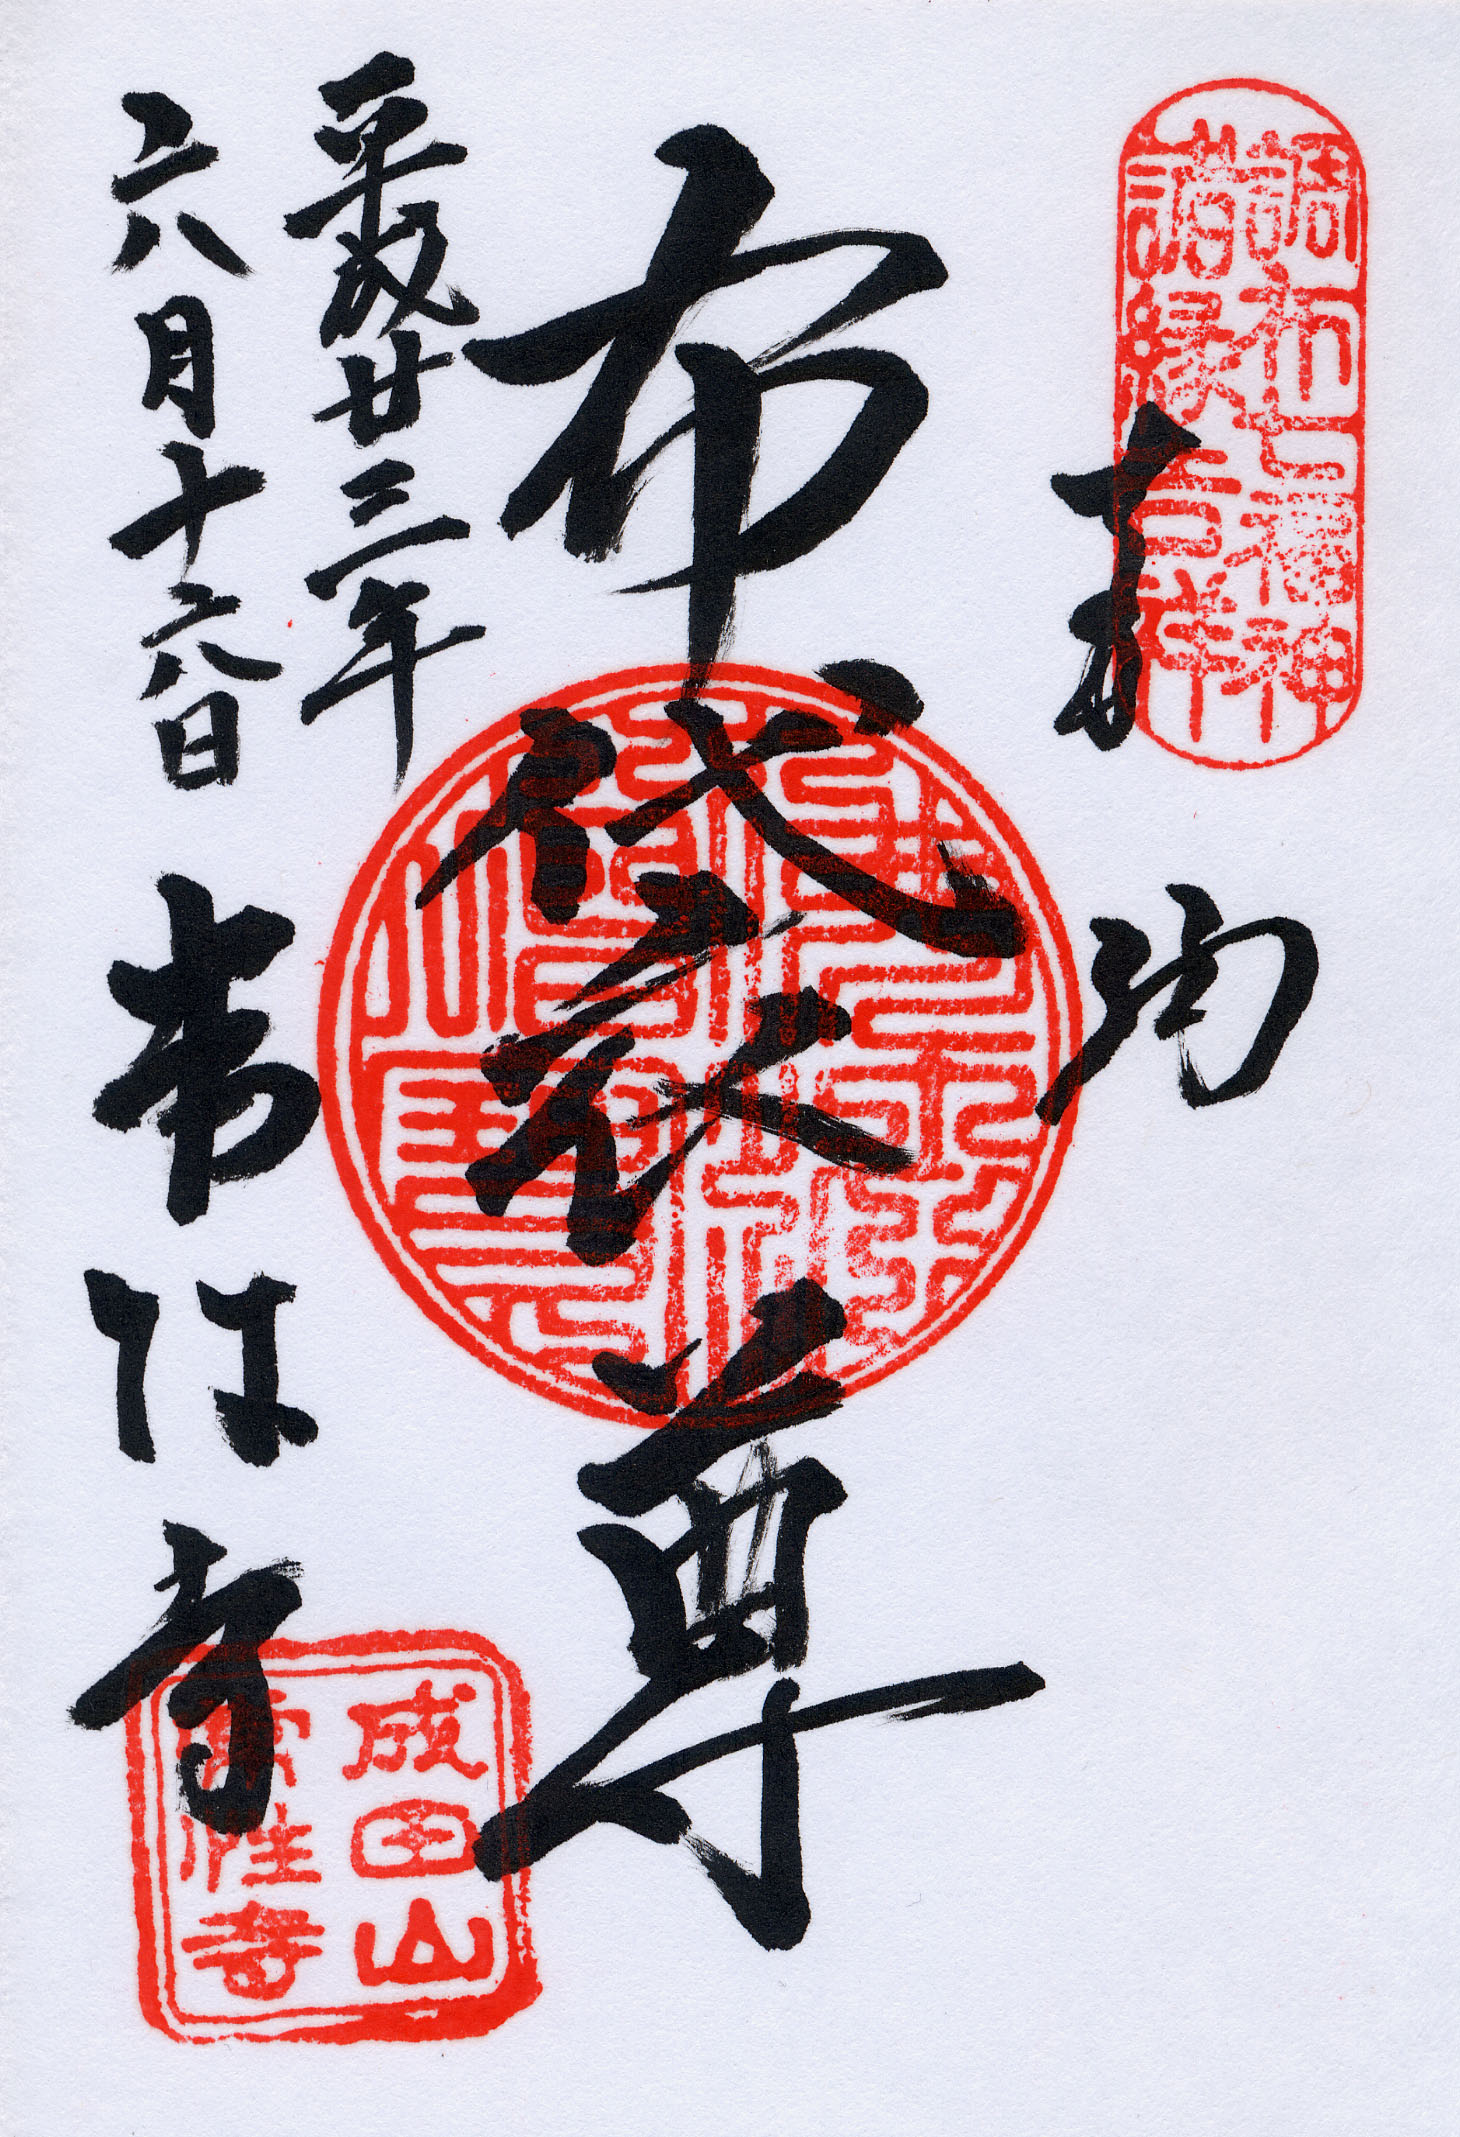 調布七福神
諸縁吉祥
奉納
布袋尊
平成廿三年
六月十六日
常性寺
成田山
常性寺